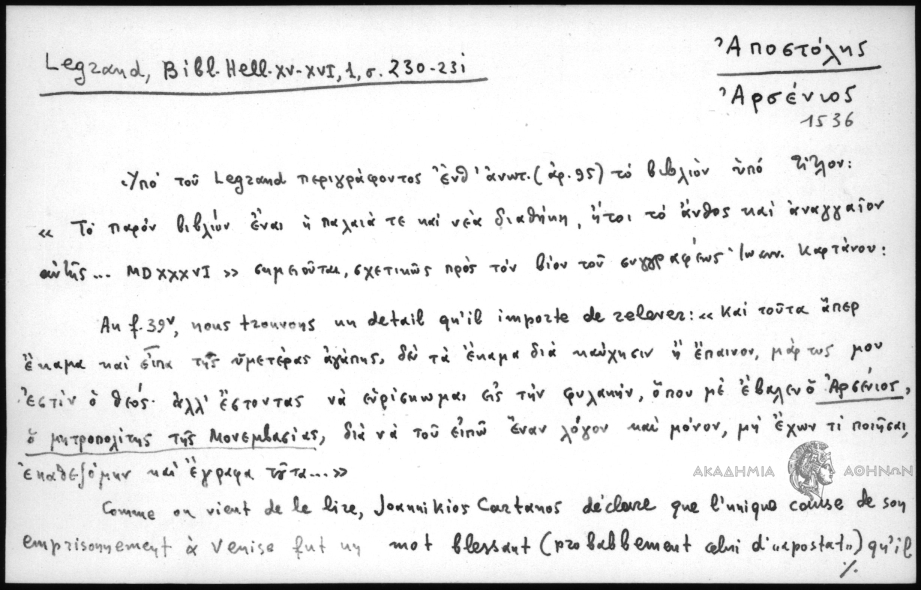 Legrand, Bibl. Hell. XV-XVI, 1, σ. 230-231
Ἀποστόλης
Ἀρσένιος
1536
Ὑπὸ τοῦ Legrand περιγράφοντος ἔνθ' ἀνωτ. (ἀρ. 95) τὸ βιβλίον ὑπό τίτλον:
« Τὸ παρόν βιβλίον ἔναι ἡ παλαιά τε καί νέα διαθήκη, ἤτοι τό ἄνθος καί ἀναγγαῖον
αὐτῆς ... MDXXXVI » σημειοῦται, σχετικῶς πρὸς τὸν βίον τοῦ συγγραφέως Ἰωανν. Καρτάνου:
Au f. 39v, nous trouvons un detail qu'il importe de relever: « Καί τοῦτα ἅπερ
ἔκαμα καί εἶπα τῆς ὑμετέρας ἀγάπης, δὲν τὰ ἔκαμα διά καύχησιν ἢ ἔπαινον, μάρτυς μου
ἐστὶν ὁ θεός· ἀλλ' ἔστοντας νὰ εὑρίσκωμαι εἰς τὴν φυλακήν, ὅπου μὲ ἔβαλεν ὁ Ἀρσένιος,
ὁ μητροπολίτης τῆς Μονεμβασίας, διὰ νὰ τοῦ εἰπῶ ἕναν λόγον καί μόνον, μή ἔχων τί ποιῆσαι,
ἐκαθεζόμην καί ἔγραφα τοῦτα...»
ΑΚΑΔΗΜΙΑ ΑΘΗΝΩΝ
Comme on vient de le lire, Joannikios Cartanos déclare que l'unique cause de son
emprisonnement à Venise fut un mot blessant (probabbement celui d'«apostat») qu'il
%